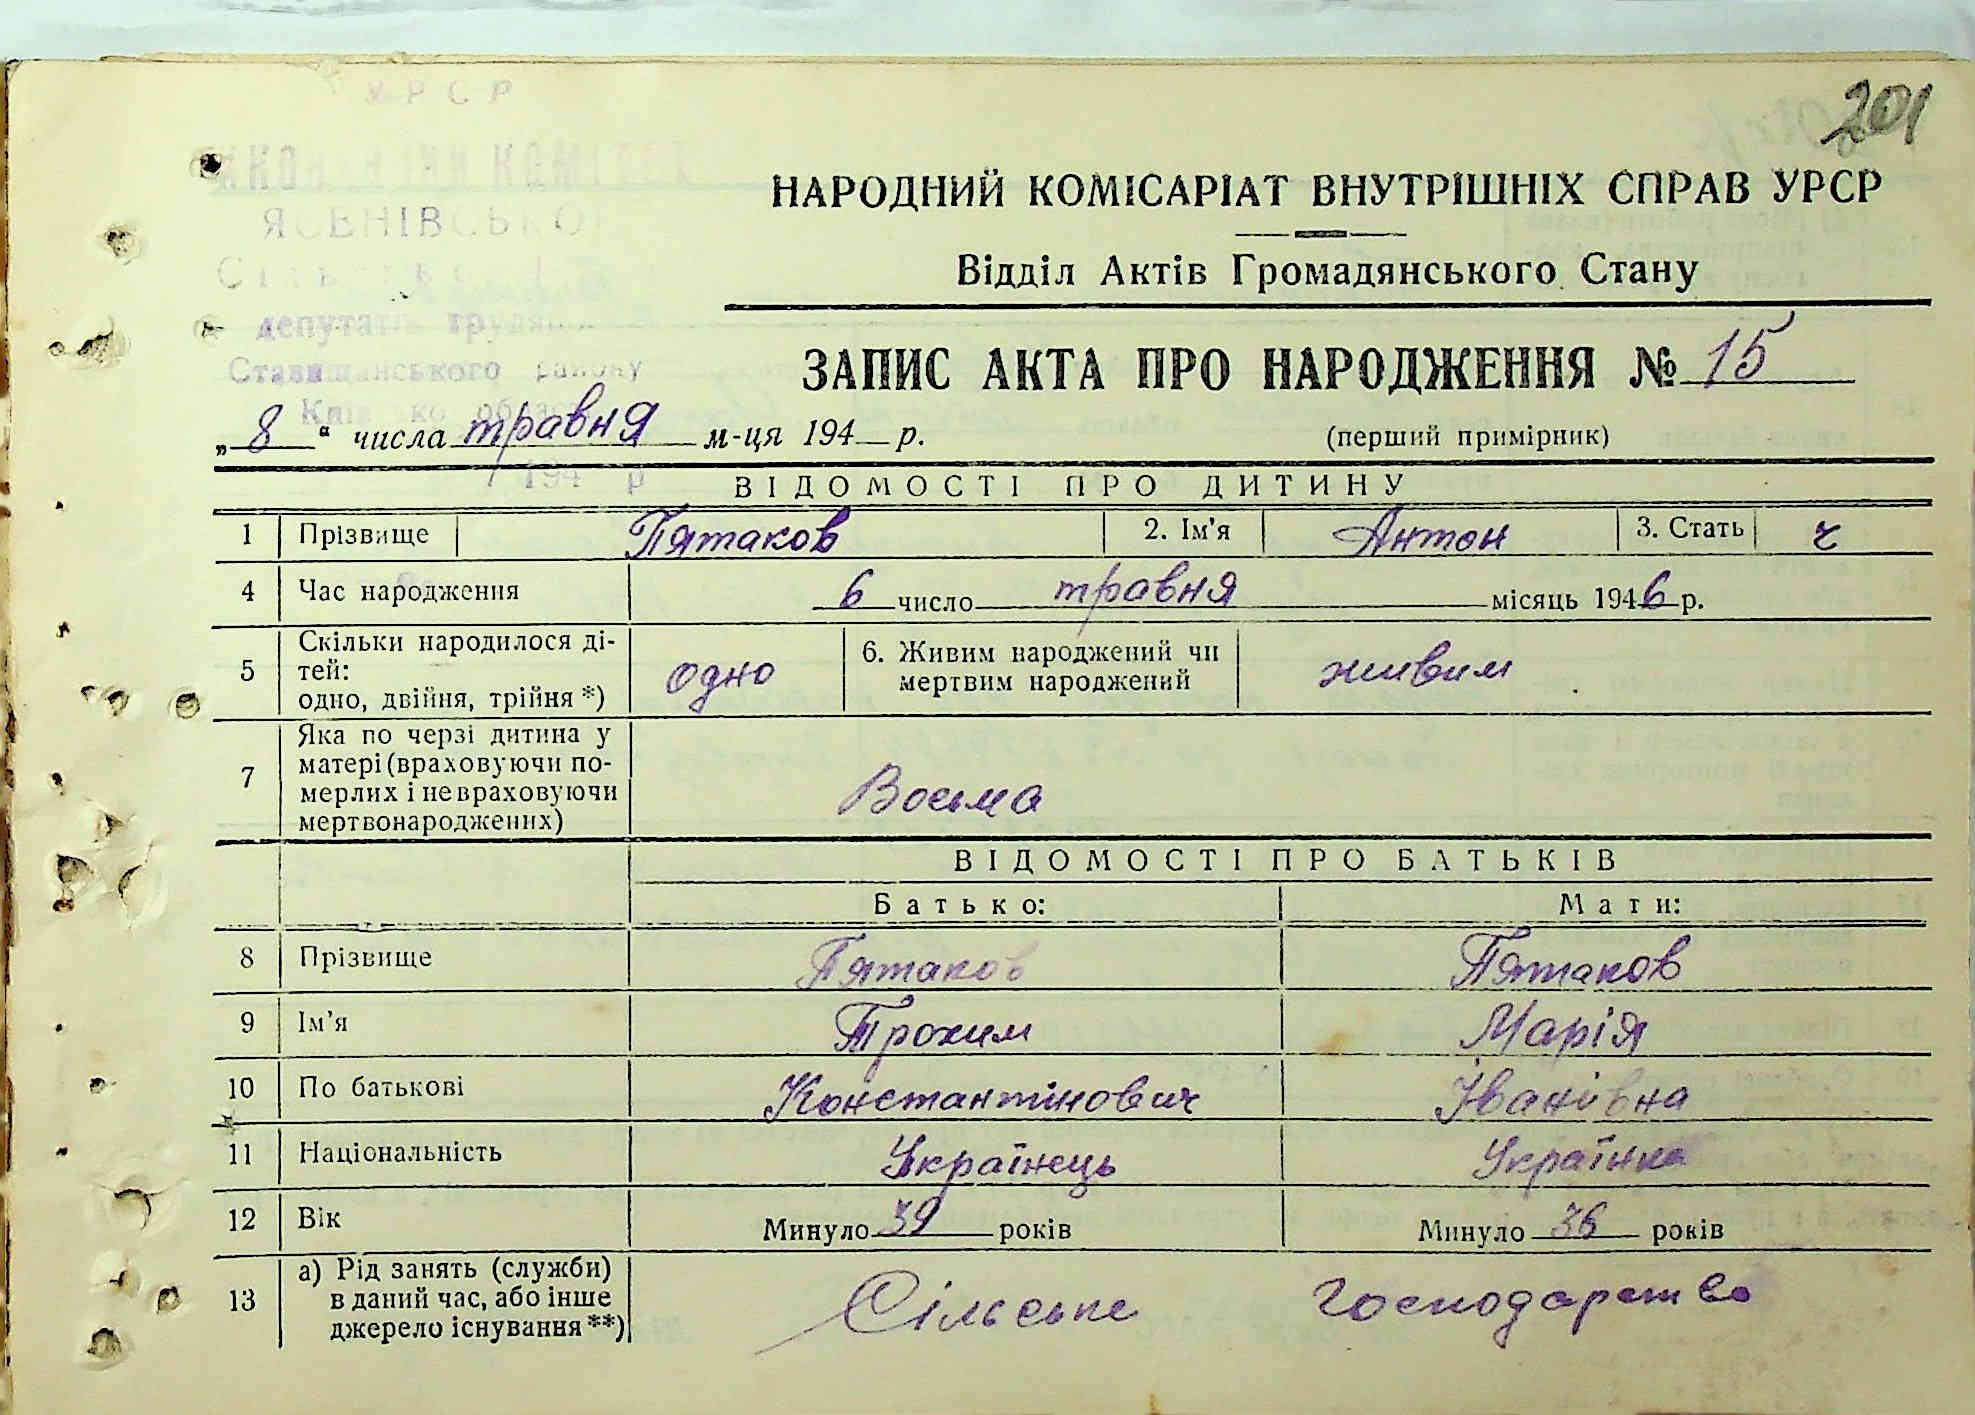 201
УРСР
ЯСЕНІВСЬКОЇ
депутатів трудящ
Ставищанського району
області
194 р
НАРОДНИЙ КОМІСАРІАТ ВНУТРІШНІХ СПРАВ УРСР
Відділ Актів Громадянського Стану
ЗАПИС АКТА ПРО НАРОДЖЕННЯ № 15
„8“ числа травня м-ця 194 р. (перший примірник)
ВІДОМОСТІ ПРО ДИТИНУ
1 Прізвище Пятаков 2. Ім'я Антон 3. Стать ч
4 Час народження 6 число травня місяць 1946 р.
5 Скільки народилося ді-
тей:
одно, двійня, трійня *) одно 6. Живим народжений чи
мертвим народжений живим
7 Яка по черзі дитина у
матері (враховуючи по-
мерлих і не враховуючи
мертвонароджених) Восьма
ВІДОМОСТІ ПРО БАТЬКІВ
Батько: Мати:
8 Прізвище Пятаков Пятаков
9 Ім'я Трохим Марія
10 По батькові Константінович Іванівна
11 Національність Українець Українка
12 Вік Минуло 39 років Минуло 36 років
13 а) Рід занять (служби)
в даний час, або інше
джерело існування **) Сільське господарство